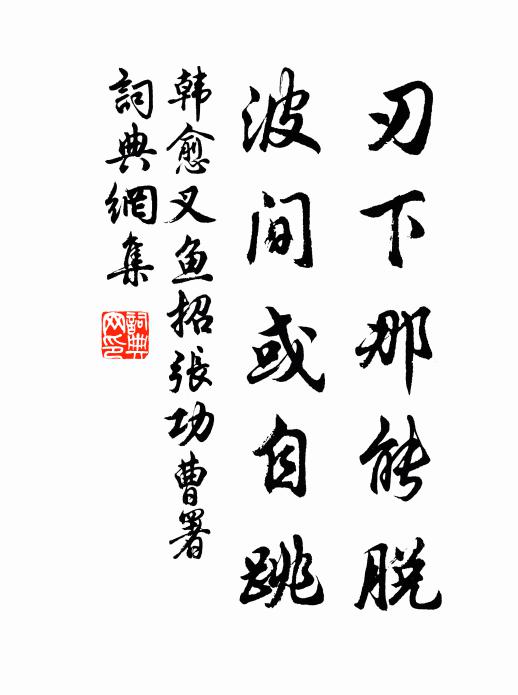 刃下那能脱
波间或自跳
韩愈叉鱼招張功曹署
詞典網集
詞典
网印